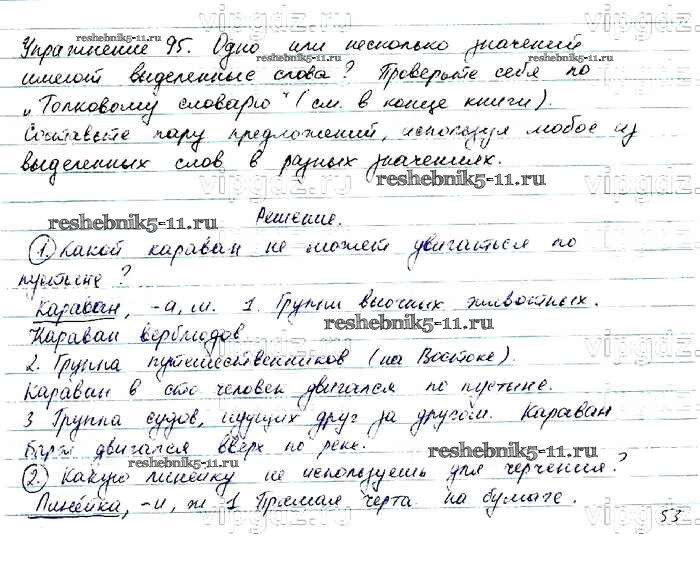 Упражнение 95. Одно или несколько значений
имеют выделенные слова? Проверьте себя по
„Толковому словарю" (см. в конце книги).
Составьте пару предложений, используя любое из
выделенных слов в разных значениях.
Решение.
1. Какой караван не может двигаться по
пустыне?
Караван, -а, м. 1. Группа вьючных животных.
Караван верблюдов.
2. Группа путешественников (на Востоке).
Караван в сто человек двигался по пустыне.
3 Группа судов, идущих друг за другом. Караван
барж двигался вверх по реке.
2. Какую линейку не используешь для черчения?
Линейка, -и, ж 1 Прямая черта на бумаге.
53
reshebnik5-11.ru
reshebnik5-11.ru
reshebnik5-11.ru
reshebnik5-11.ru
reshebnik5-11.ru
reshebnik5-11.ru
reshebnik5-11.ru
vipgdz.ru
vipgdz.ru
vipgdz.ru
vipgdz.ru
vipgdz.ru
vipgdz.ru